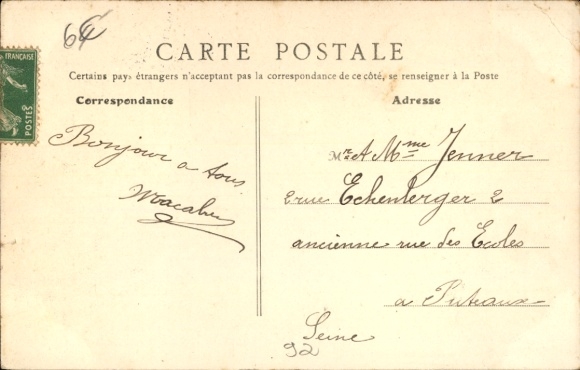 64
CARTE POSTALE
Certains pays étrangers n'acceptent pas la correspondance de ce côté, se renseigner à la Poste
FRANÇAISE
POSTES
Correspondance
Bonjour a tous
Adresse
Mr et Mme Jenner
2 rue Echenberger 2
ancienne rue des Ecoles
a Puteaux
Seine
92